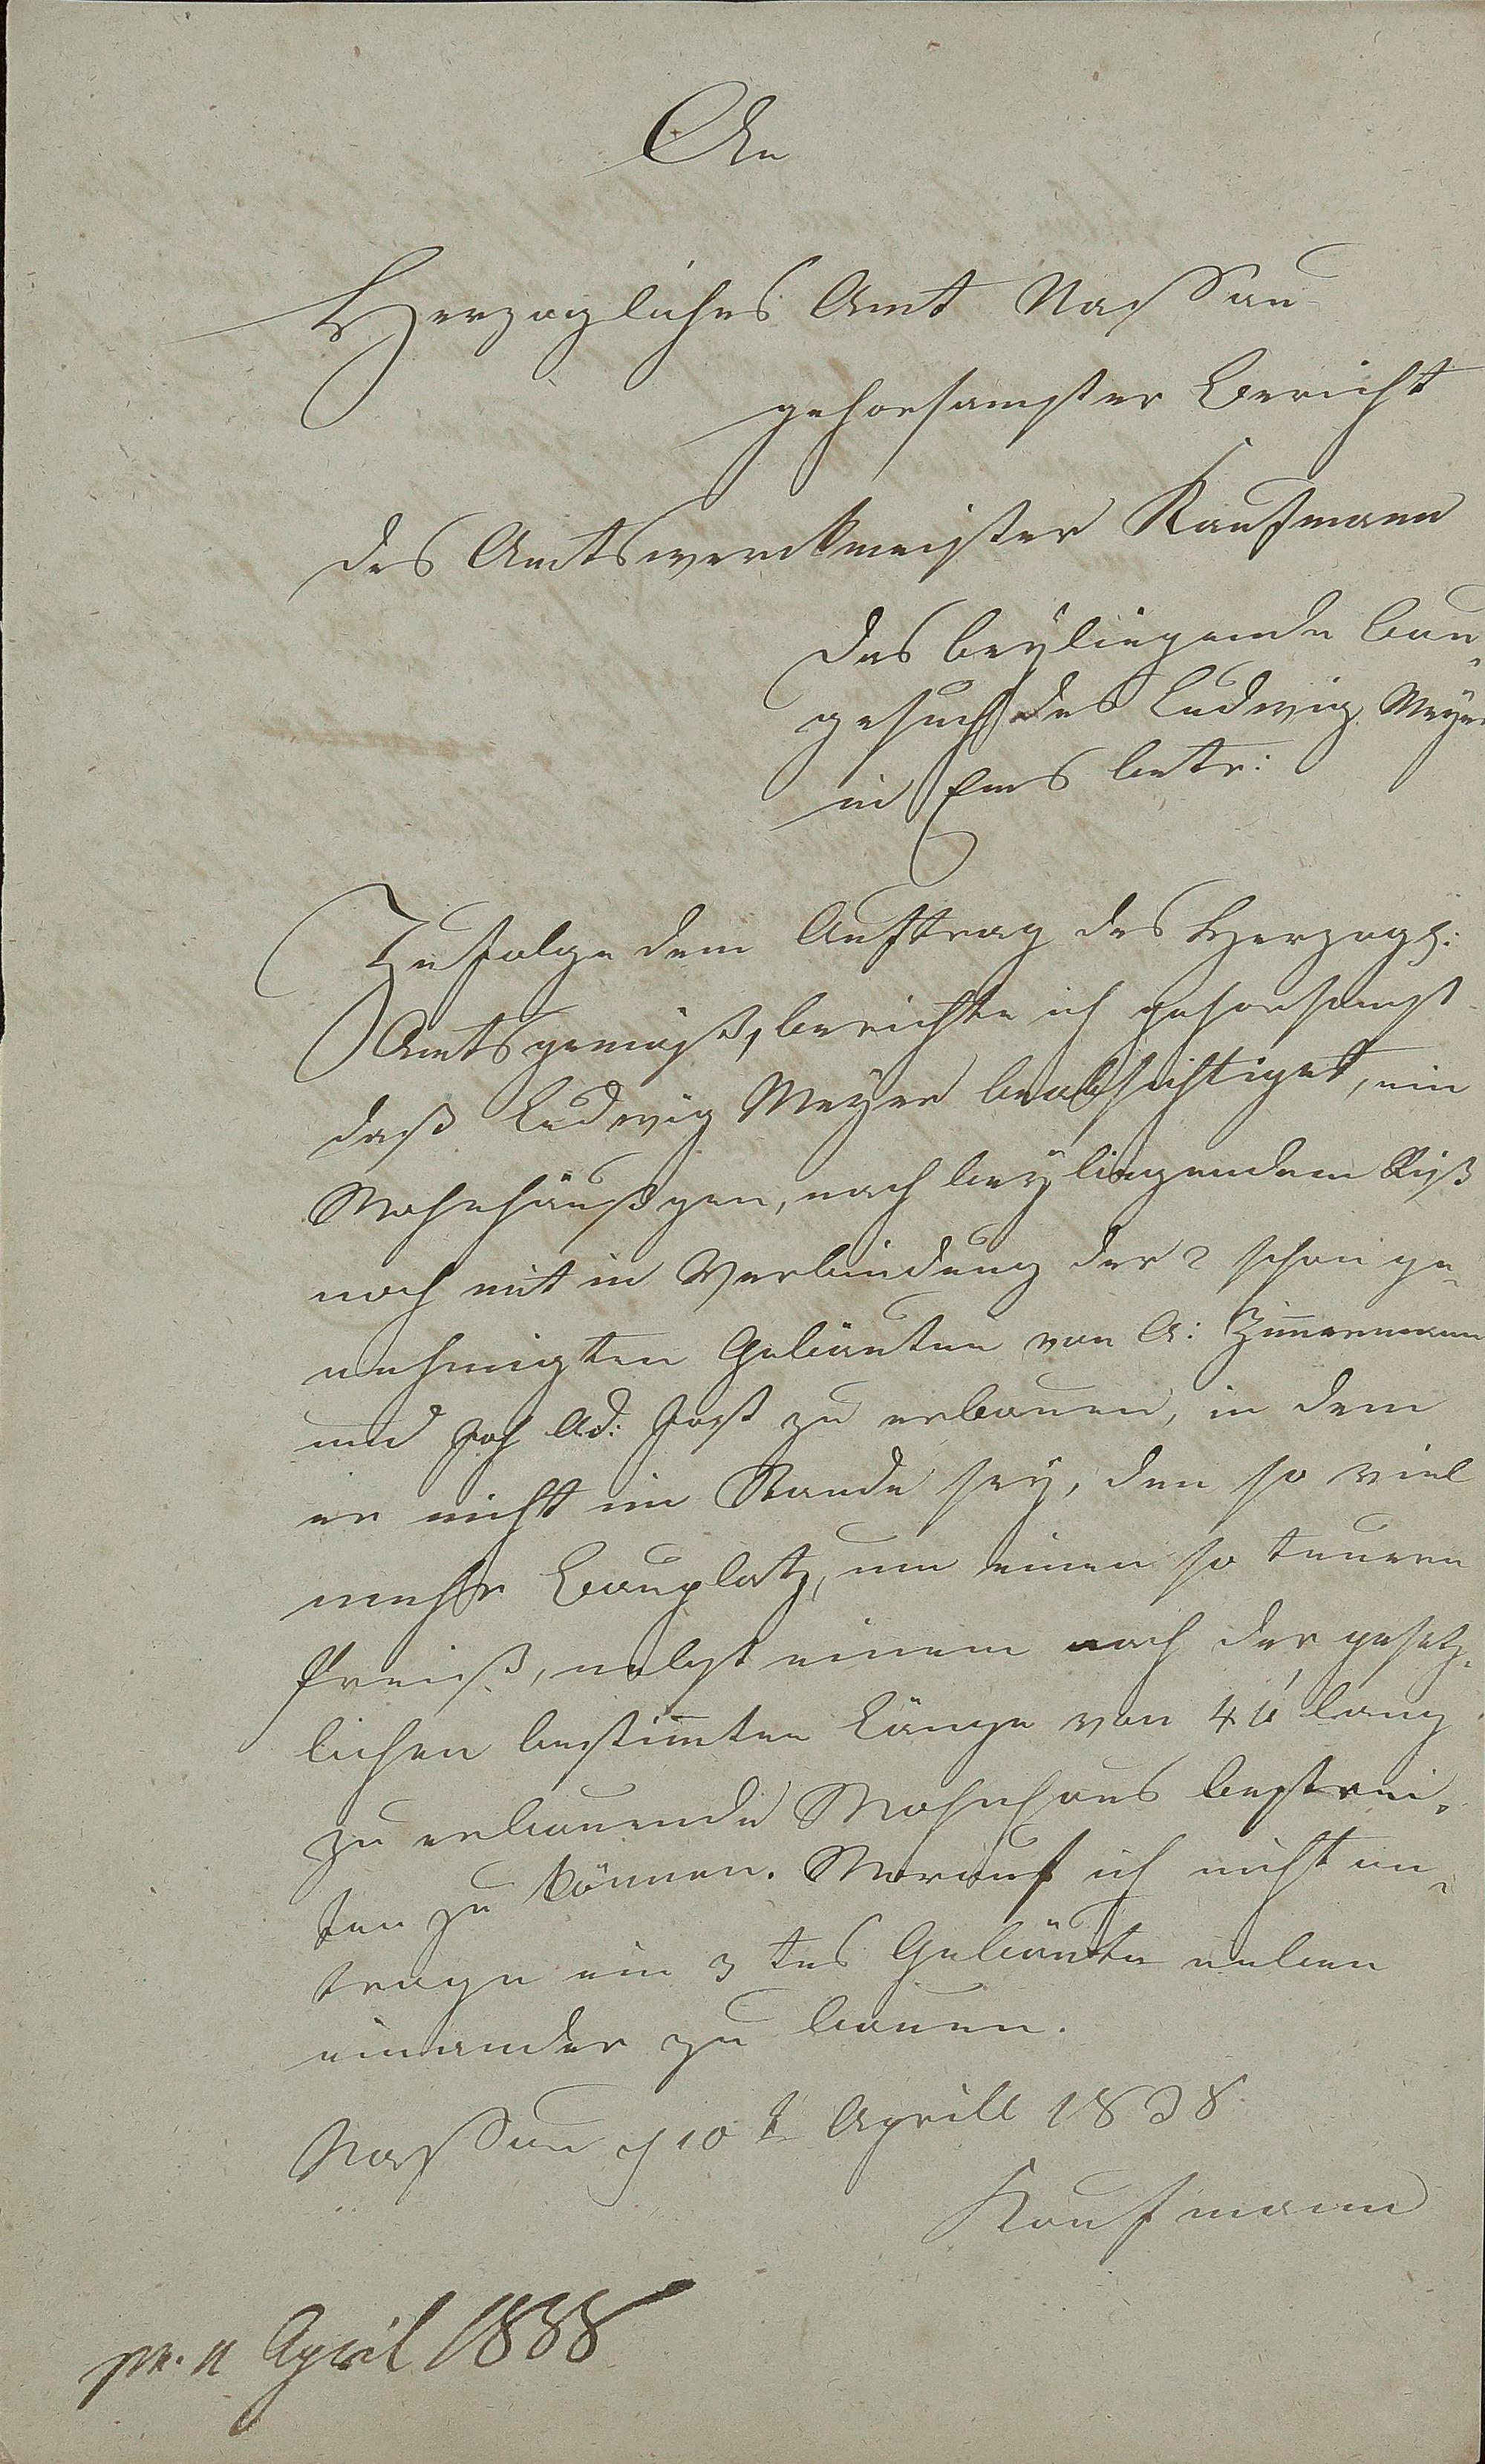 An
Herzogliches Amt Nassau
gehorsamster Bericht
des Amtswerckmeister Kaufmann
das beyliegende Bau-
gesuch des Ludwig Meyer
in Ems betr:
Zufolge dem Auftrag des Herzogl:
Amtsgemäß, berichte ich gehorsamst
daß Ludwig Meyer beabsichtiget, ein
Wohnhäußgen, nach beyliegendem Riß
noch mit in Verbindung der 2 schon ge-
nehmigten Gebäuten von A: Zimmermann
und Joh Ad: Jost zu erbauen, in dem
er nicht im Stande sey, den so viel
mehr Bauplatz, um einen so teuren
Preiß, nebst einem nach der gesetz-
lichen bestimten Länge von 40' lang
zu erbauende Wohnhaus bestrei-
ten zu können. Worauf ich nicht an-
trage ein 3tes Gebäute neben
einander zu bauen.
Nassau d 10t Aprill 1838
Kaufmann
pr. 11 April 1838